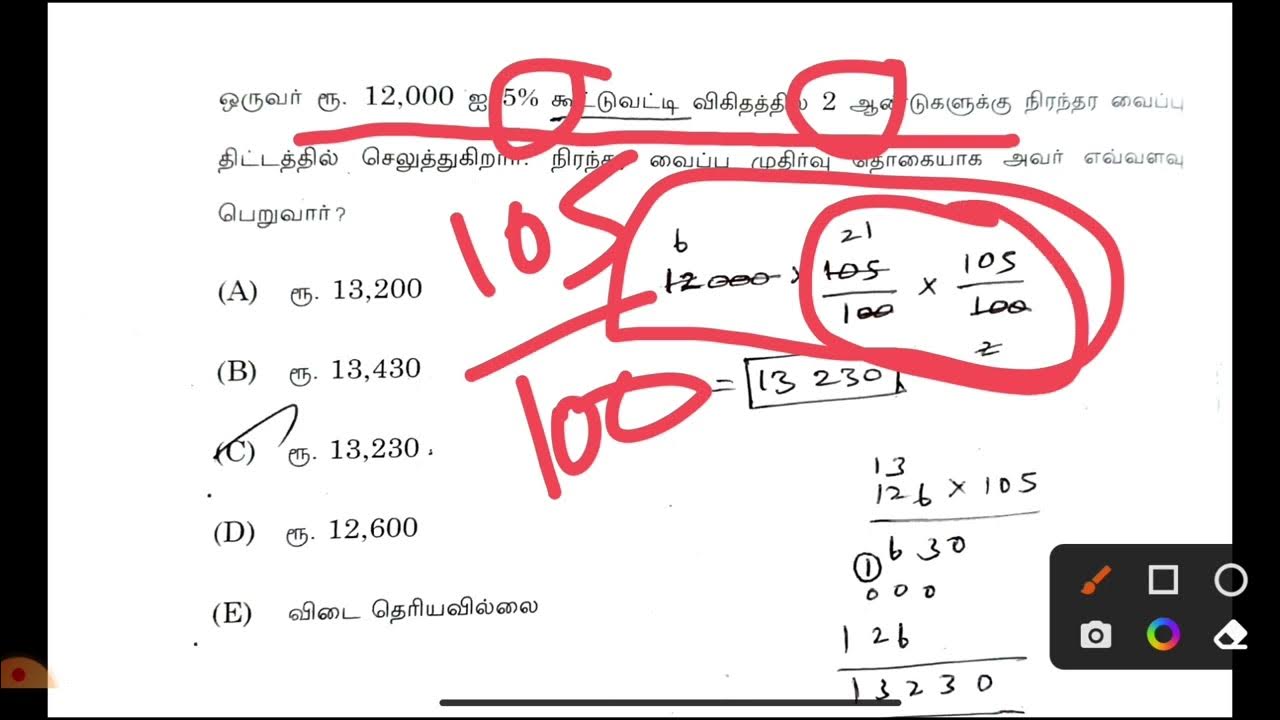 ஒருவர் ரூ. 12,000 ஐ 5% கூட்டுவட்டி விகிதத்தில் 2 ஆண்டுகளுக்கு நிரந்தர வைப்பு
திட்டத்தில் செலுத்துகிறார். நிரந்தர வைப்பு முதிர்வு தொகையாக அவர் எவ்வளவு
பெறுவார்?
105
100
6 21
12000 × 105/100 × 105/100
2
= 13 230
(A) ரூ. 13,200
(B) ரூ. 13,430
(C) ரூ. 13,230
(D) ரூ. 12,600
(E) விடை தெரியவில்லை
13
126 × 105
1 630
000
126
13230